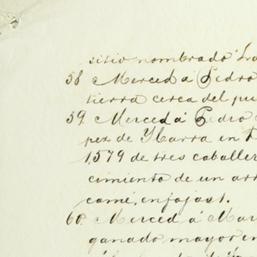 sitio nombrado
58 Merced a Pedro
tierra cerca del
59 Merced á Pedro
pez de Ybarra en
1579 de tres caballer
cimiento de un
came, en fojas 1.
60 Merced á Mar
ganado mayor en